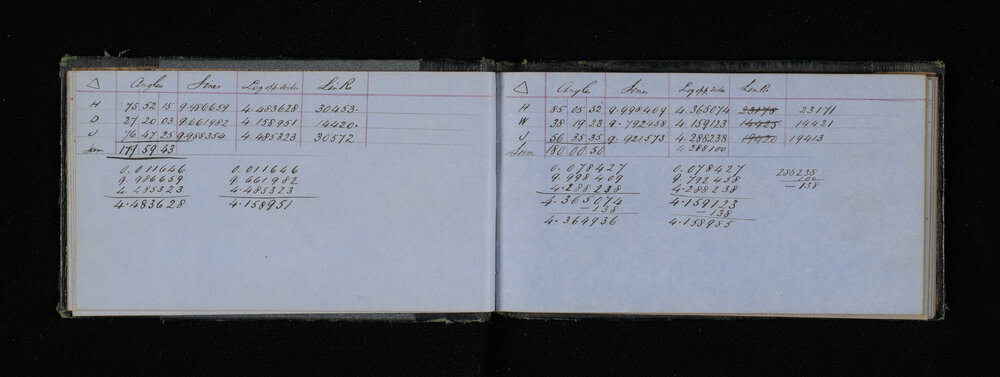 △ Angles Sines Log opp. sides Links
H 75 52 15 9.986659 4.483628 30453.
D 27 20 03 9.661982 4.158951 14420.
J 76 47 25 9.988354 4.485323 30572
Sum 179 59 43
0.011646 0.011646
9.986659 9.661982
4.485323 4.485323
4.483628 4.158951
△ Angles Sines Log opp side Links
H 85 05 52 9.998409 4.365074 23175 23171
W 38 19 23 9.792458 4.159123 14425 14421
J 56 35 35 9.921573 4.288238 19420 19413
Sum 180.00.50 4.288100
0.078427 0.078427 288238
9.998409 9.792458 100
4.288238 4.288238 -138
4.365074 4.159123
-138 -138
4.364936 4.158985